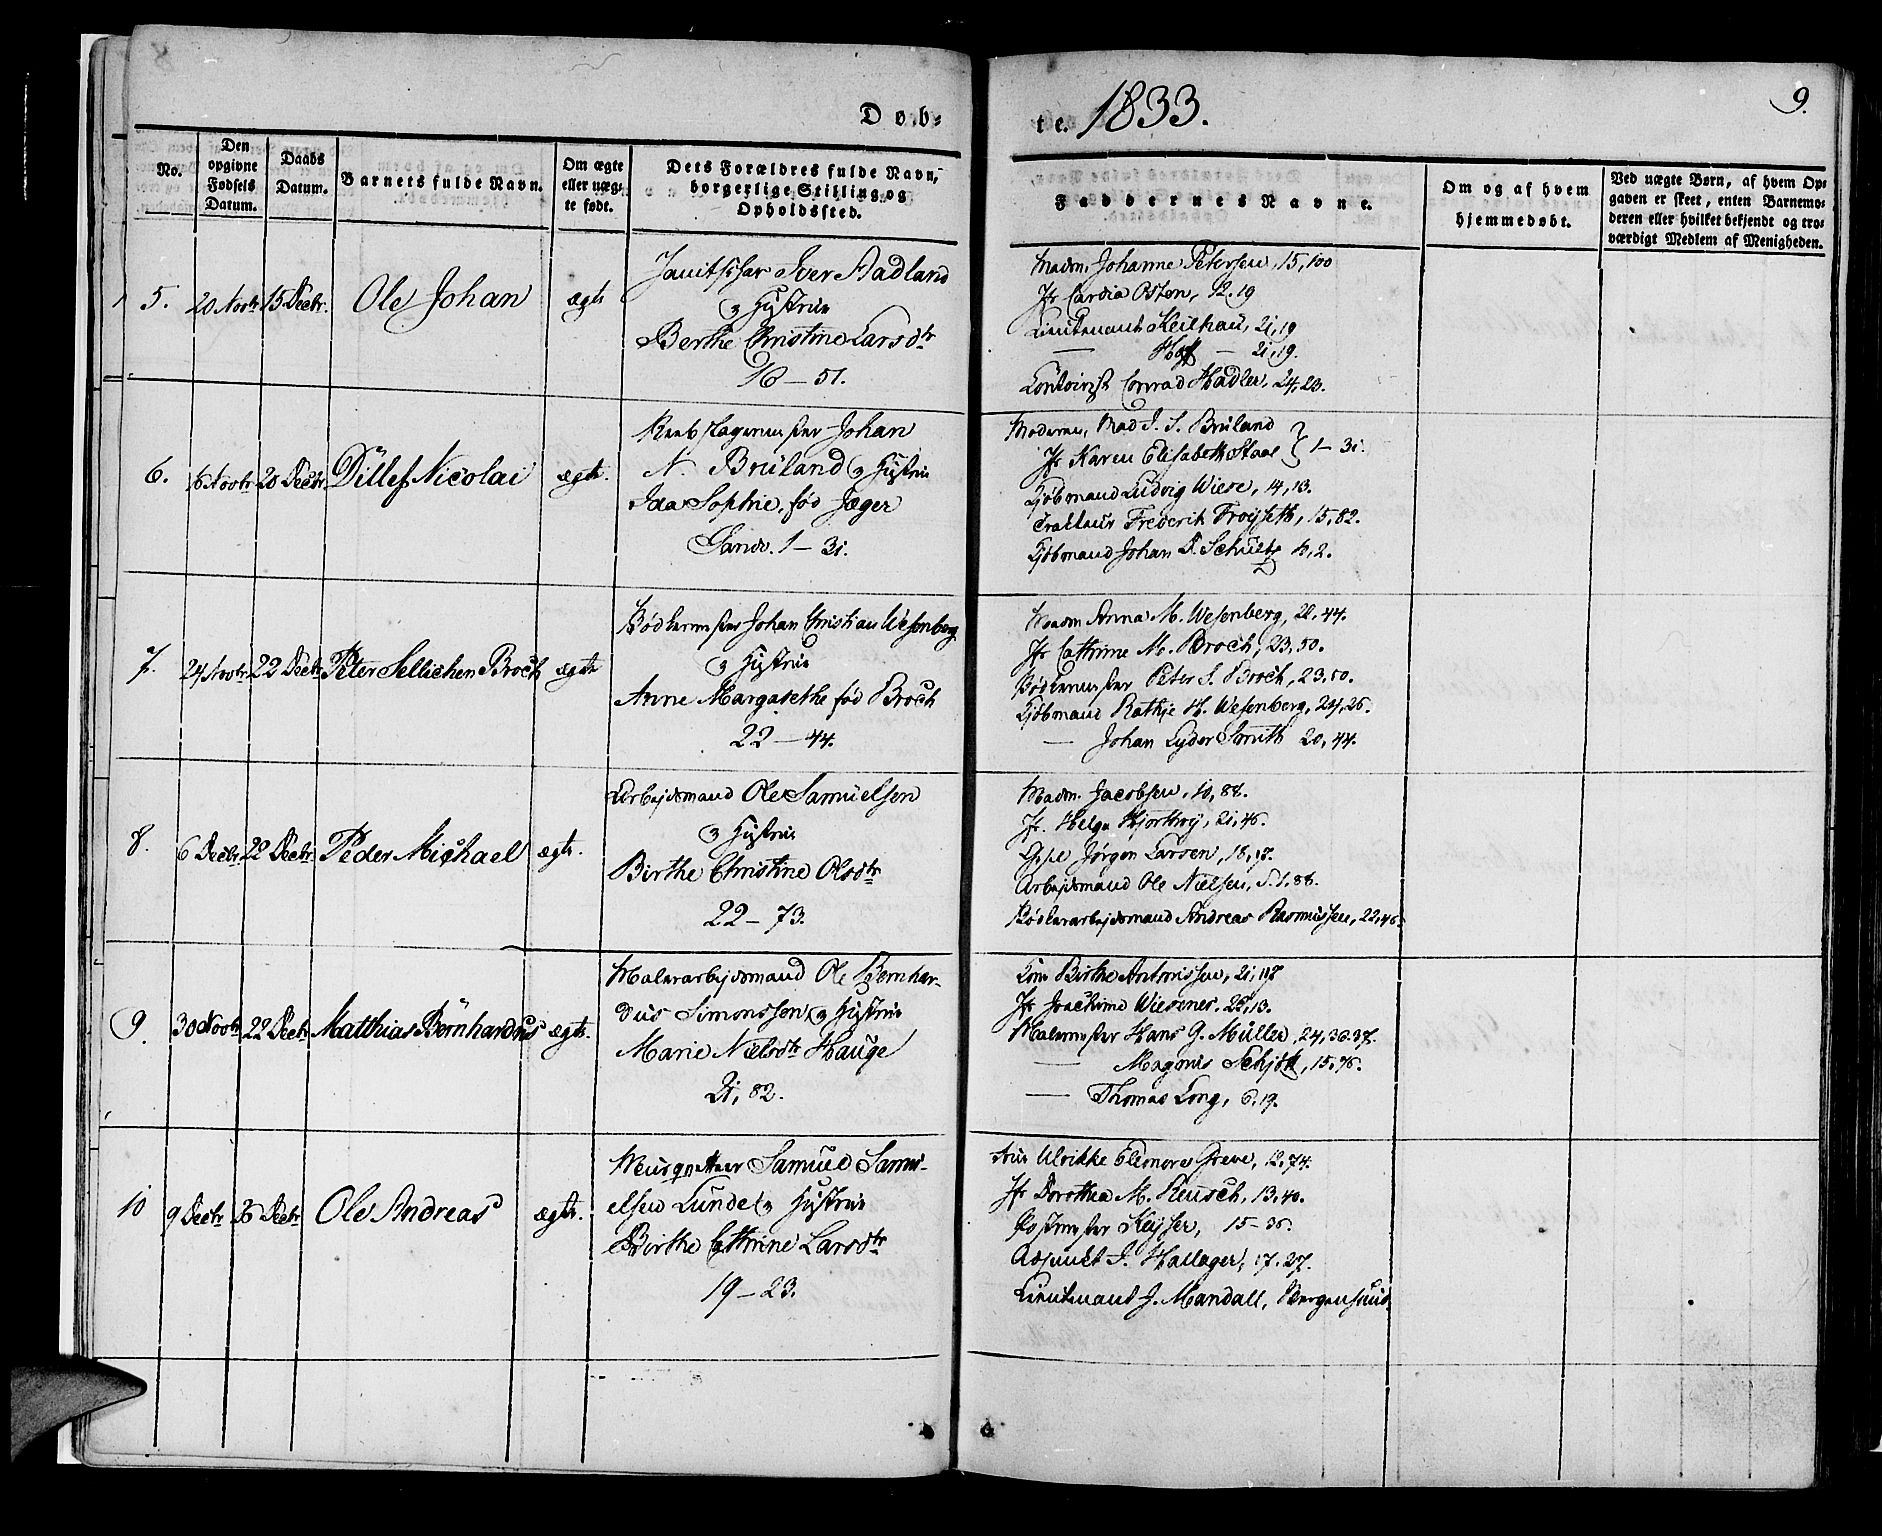 Døb-
te. 1833.
9.
No.
Den opgivne Fødsels Datum.
Daabs Datum.
Barnets fulde Navn.
Om ægte eller uæg- te født.
Dets Forældres fulde Navn, borgerlige Stilling og Opholdssted.
Faddernes Navne.
Om og af hvem hjemmedøbt.
Ved uægte Børn, af hvem Op- gaven er skeet, enten Barnemo- deren eller hvilket bekjendt og tro- værdigt Medlem af Menigheden.
5. 20 Novbr 15 Decbr. Ole Johan ægte
Iver Aadland
& Hustrue
Berthe Christine Larsdtr
16 – 51.
Madm. Johanne Petersen, 15, 100
Jfr Osten, 12.19
Lieutenant Keilhau, 21, 19
— Hoff — 21, 19.
Conrad Hadler, 24, 23.
6. 16 Novbr 26 Decbr. Dillef Nicolai ægte.
Reebslagermester Johan
N. Brüland & Hustrue
Ida Sophie, fød Jæger
Sandv. 1 – 31.
Moderen, Mad J. S. Brüland
Jfr Karen Elisabeth Staal } 1 – 31.
Kjøbmand Ludvig Wiese, 14, 13.
Frederik Froyseth, 15, 82.
Kjøbmand Johan D. Schultz
7. 24 Novbr. 22 Decbr. Peter Sellichen Broch ægte
Bødkermester Johan Christian Wesenberg
& Hustrue
Anne Margarethe fød Broch
22 – 44.
Madm Anna M. Wesenberg, 22, 44.
Jfr Cathrine M. Broch, 23, 50.
Bødkermester Peter S. Broch, 23, 50.
Kjøbmand Rathje H. Wesenberg, 24, 26.
— Johan Lyder Smith 20, 44.
8. 6 Decbr. 22 Decbr. Peder Michael ægte.
Arbejdsmand Ole Samuelsen
& Hustrue
Birthe Christine Olsdtr
22 – 73.
Madm. Jacobsen, 10, 88.
Jfr. Helga Hjorthøj, 21, 46.
Jørgen Larsen, 18, 17.
Arbejdsmand Ole Nielsen, S. 1, 88.
Bødkerarbejdsmand Andreas Rasmussen, 22, 46.
9. 30 Novbr 22 Decbr Matthias Bernhardus ægte.
Malerarbejdsmand Ole Bernhar-
dus Simonssen & Hustrue
Marie Nielsdtr Hauge
21, 82.
Kone Birthe Antonissen, 21,
Jfr Joachime Wiesener, 22, 13.
Malermester Hans G. Müller, 24, 36.37.
— Magnus Schjøtt, 15, 76.
— Thomas Long, 6.19.
10 9 Decbr 26 Decbr Ole Andreas ægte.
Musquetteer Samuel Samu-
elsen Lunde & Hustrue
Birthe Cathrine Larsdtr
19 – 23.
Frue Ulrikke Eleonora Greve, 12.74.
Jfr Dorothea M. Reusch, 13, 40.
Postmester Keyser, 15 – 36.
Adjunct J. Hallager, 17. 27.
Lieutenant J. Mandall, Bergenhuus